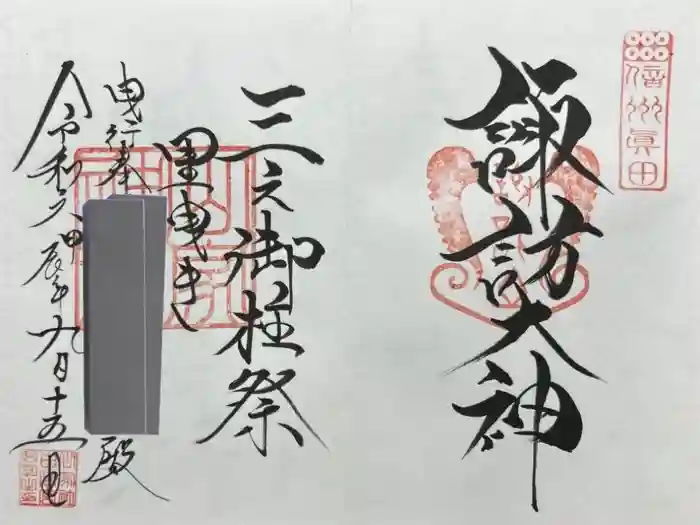 信州眞田
諏訪大神
三之御柱祭
里曳き
曳行奉
殿
令和六甲辰年九月十五日